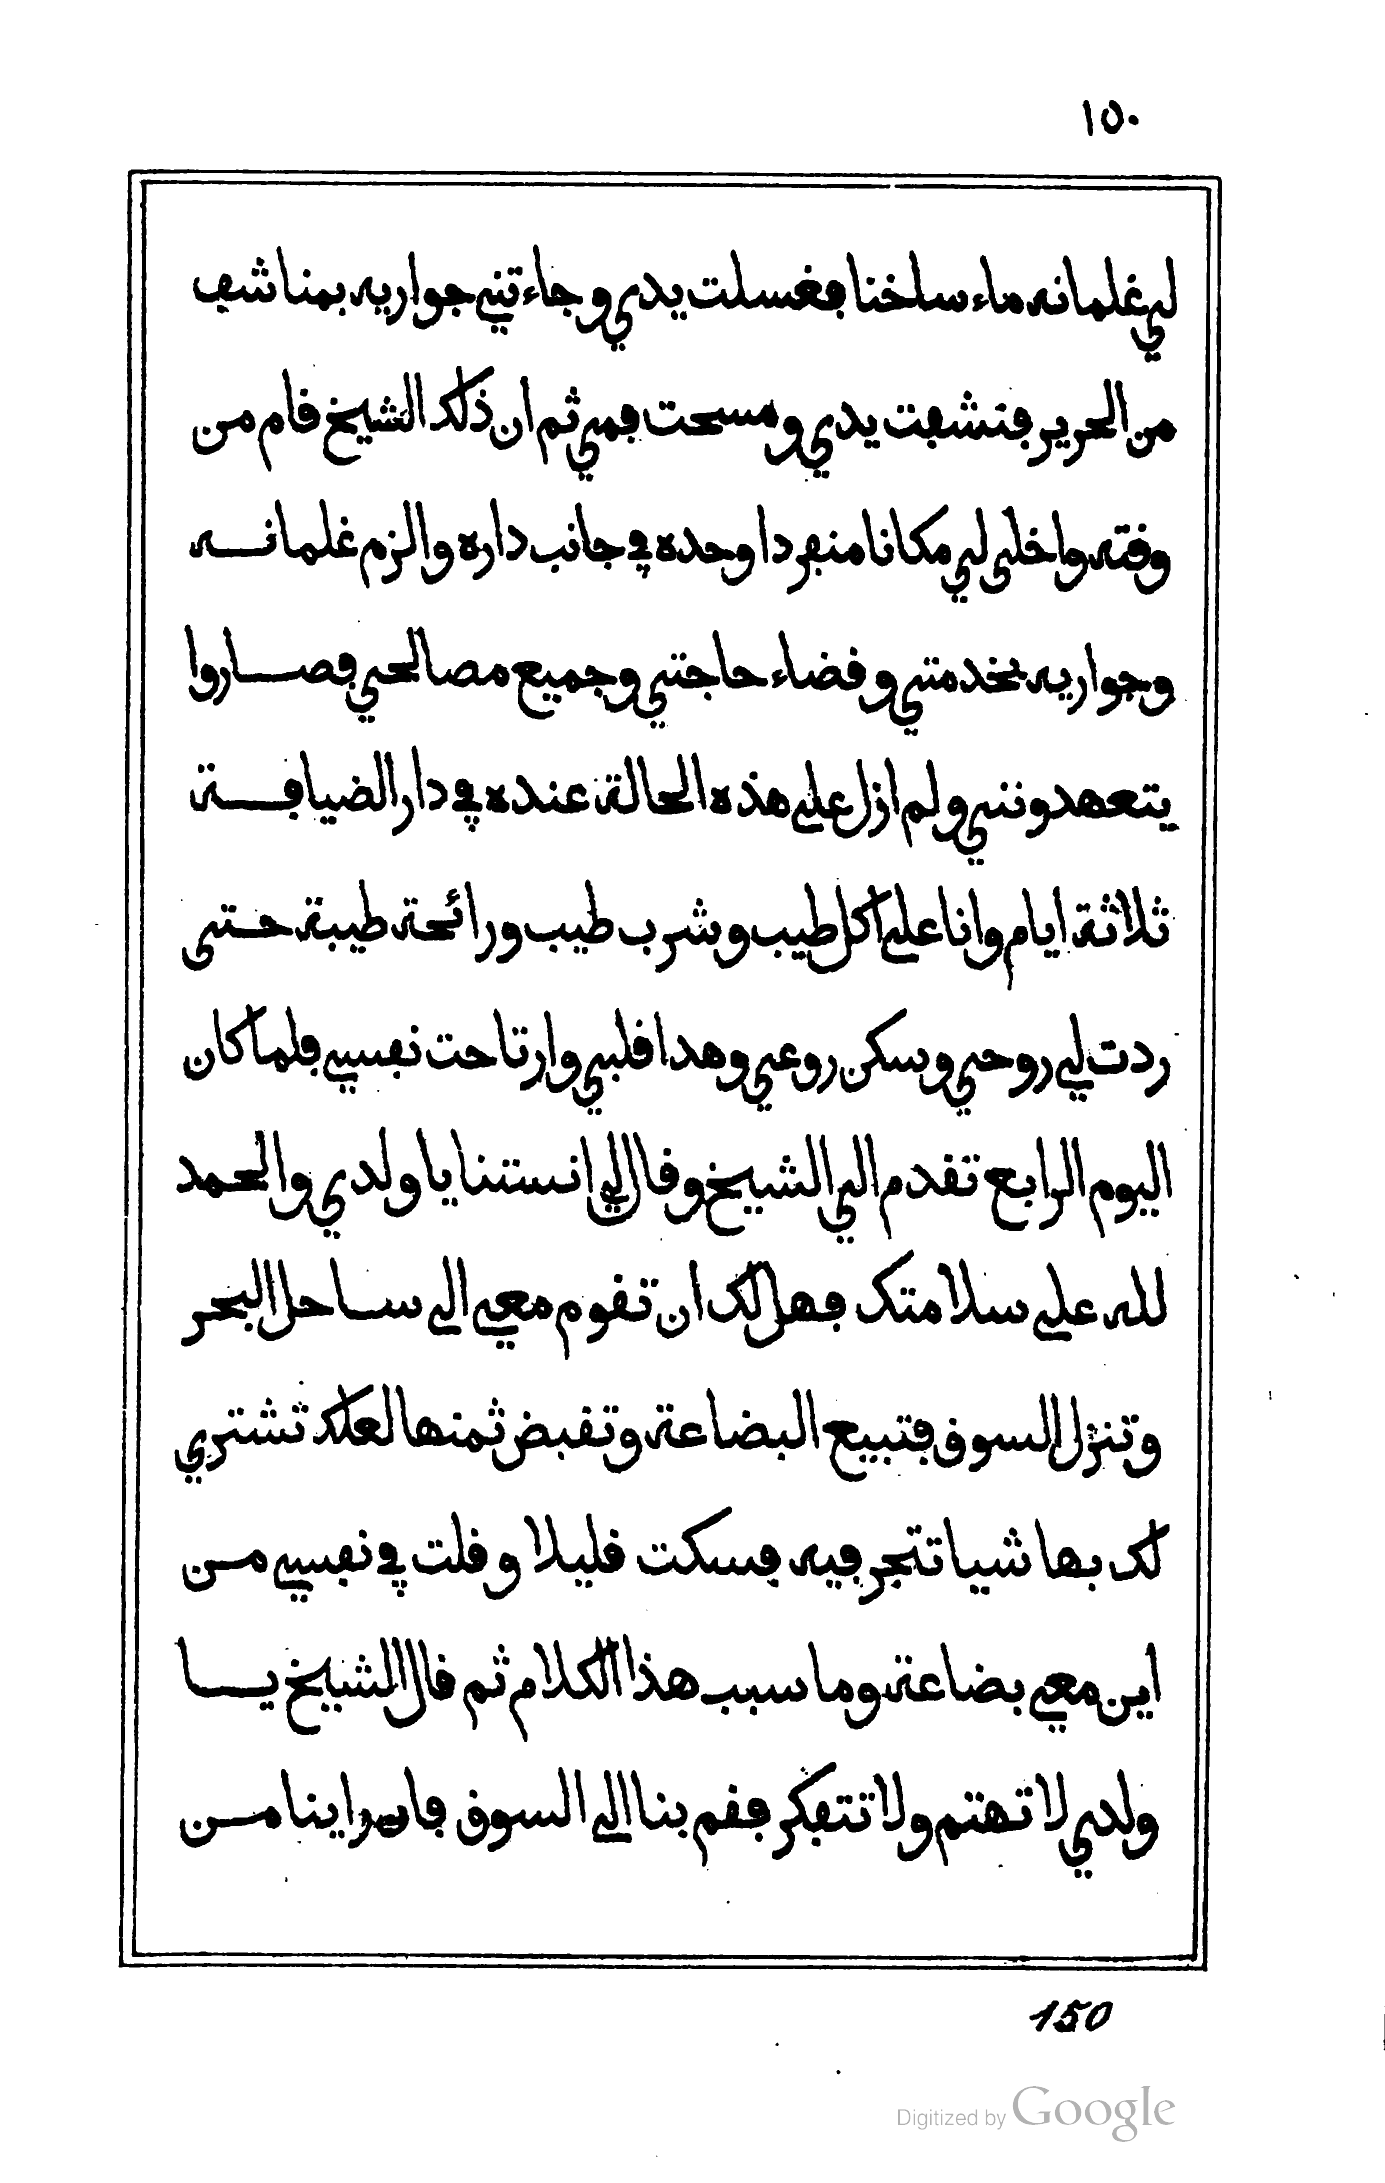 ١٥٠
لي غلمانه ماء ساخنا فغسلت يدي وجاءتني جواريه بمناشف
من الحرير فنشفت يدي ومسحت فمي ثم ان ذلك الشيخ قام من
وقته واخلى لي مكانا منفردا وحده في جانب داره والزم غلمانه
وجواريه بخدمتي وقضاء حاجتي وجميع مصالحي فصاروا
يتعهدونني ولم ازل على هذه الحالة عنده في دار الضيافة
ثلاثة ايام وانا على اكل طيب وشرب طيب ورائحة طيبة حتى
ردت لي روحي وسكن روعي وهدا قلبي وارتاحت نفسي فلما كان
اليوم الرابع تقدم الي الشيخ وقال لي انستنا يا ولدي والحمد
لله على سلامتك فهل لك ان تقوم معي الى ساحل البحر
وتنزل السوق فتبيع البضاعة وتقبض ثمنها لعلك تشتري
لك بها شيا تتجر فيه فسكت قليلا وقلت في نفسي من
اين معي بضاعة وما سبب هذا الكلام ثم قال الشيخ يا
ولدي لا تهتم ولا تتفكر فقم بنا الى السوق فان راينا من
150
Digitized by Google